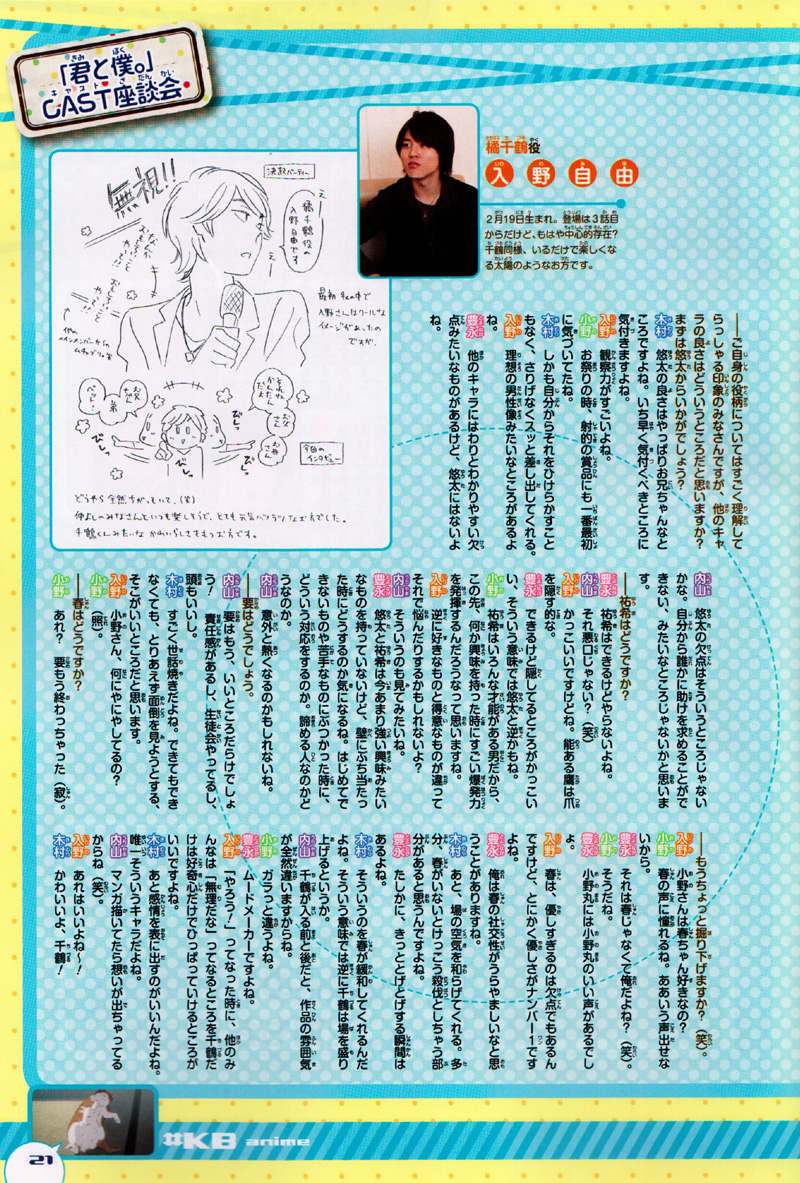 「君と僕。」
CAST座談会
橘千鶴役
入野自由
2月19日生まれ。登場は3話目
からだけど、もはや中心的存在?
千鶴同様、いるだけで楽しくな
る太陽のようなお方です。
無視!!
決起パーティー
えー
橘千鶴役の
入野自由です
えー
最初 私の中で
入野さんはクールな
イメージがあったの
ですが、
びしっ
びしっ
今日の
インタビュー
どうやら全然ちがっていて、(笑)
仲よしのみなさんといつも楽しそうで、とても元気ハツラツな方でした。
千鶴くんみたいなかわいらしさをもつ方です。
――ご自身の役柄についてはすごく理解して
らっしゃる印象のみなさんですが、他のキャ
ラの良さはどういうところだと思いますか?
まずは悠太からいかがでしょう?
木村 悠太の良さはやっぱりお兄ちゃんなと
ころですよね。いち早く気付くべきところに
気付きますよね。
入野 観察力がすごいよね。
小野 お祭りの時、射的の賞品にも一番最初
に気づいてたね。
木村 しかも自分からそれをひけらかすこと
もなく、さりげなくスッと差し出してくれる。
入野 理想の男性像みたいなところがあるよ
ね。
豊永 他のキャラにはわりとわかりやすい欠
点みたいなものがあるけど、悠太にはないよ
ね。
内山 悠太の欠点はそういうところじゃない
かな。自分から誰かに助けを求めることがで
きない、みたいなところじゃないかと思いま
す。
――祐希はどうですか?
豊永 祐希はできるけどやらないよね。
内山 それ悪口じゃない?(笑)
入野 かっこいいですけどね。能ある鷹は爪
を隠す的な。
豊永 できるけど隠してるところがかっこい
い、そういう意味では悠太と逆かもね。
小野 祐希はいろんな才能がある男だから、
この先、何か興味を持った時にすごい爆発力
を発揮するんだろうなって思いますね。
入野 逆に好きなものと得意なものが違って
それで悩んだりするかもしれないよ?
内山 そういうのも見てみたいね。
豊永 悠太と祐希は今あまり強い興味みたい
なものを持っていないけど、壁にぶち当たっ
た時にどうするのか気になるね。はじめてで
きないものや苦手なものにぶつかった時に、
どういう対応をするのか。諦める人なのかど
うなのか。
内山 意外と熱くなるのかもしれないね。
――要はどうでしょう。
内山 要はもう、いいところだらけでしょ
う!責任感があるし、生徒会やってるし、
頭もいいし。
木村 すごく世話焼きだよね。できてもでき
なくても、とりあえず面倒を見ようとする、
そこがいいところだと思います。
入野 小野さん、何にやにやしてるの?
小野 (照)。
――春はどうですか?
小野 あれ? 要もう終わっちゃった(寂)。
――もうちょっと掘り下げますか?(笑)。
入野 小野さんは春ちゃん好きなの?
小野 春の声に憧れるね。ああいう声出せな
いから。
豊永 それは春じゃなくて俺だよね?(笑)。
小野 そうだね。
豊永 小野丸には小野丸のいい声があるでし
ょ。
入野 春は、優しすぎるのは欠点でもあるん
ですけど、とにかく優しさがナンバー1です
よね。
豊永 俺は春の社交性がうらやましいなと思
うことがありますね。
木村 あと、場の空気を和らげてくれる。多
分、春がいないとけっこう殺伐としちゃう部
分があると思うんですよね。
豊永 たしかに、きっととげとげする瞬間は
あるよね。
木村 そういうのを春が緩和してくれるんだ
よね。そういう意味では逆に千鶴は場を盛り
上げるというか。
内山 千鶴が入る前と後だと、作品の雰囲気
が全然違いますからね。
小野 ガラっと違うよね。
豊永 ムードメーカーですよね。
入野 「やろう!」ってなった時に、他のみ
んなは「無理だな」ってなるところを千鶴だ
けは好奇心だけでひっぱっていけるところが
いいですよね。
木村 あと感情を表に出すのがいいんだよね。
唯一そういうキャラだよね。
内山 マンガ描いてたら想いが出ちゃってる
からね(笑)。
入野 あれはいいよね~!
木村 かわいいよ、千鶴!
#KB anime
21